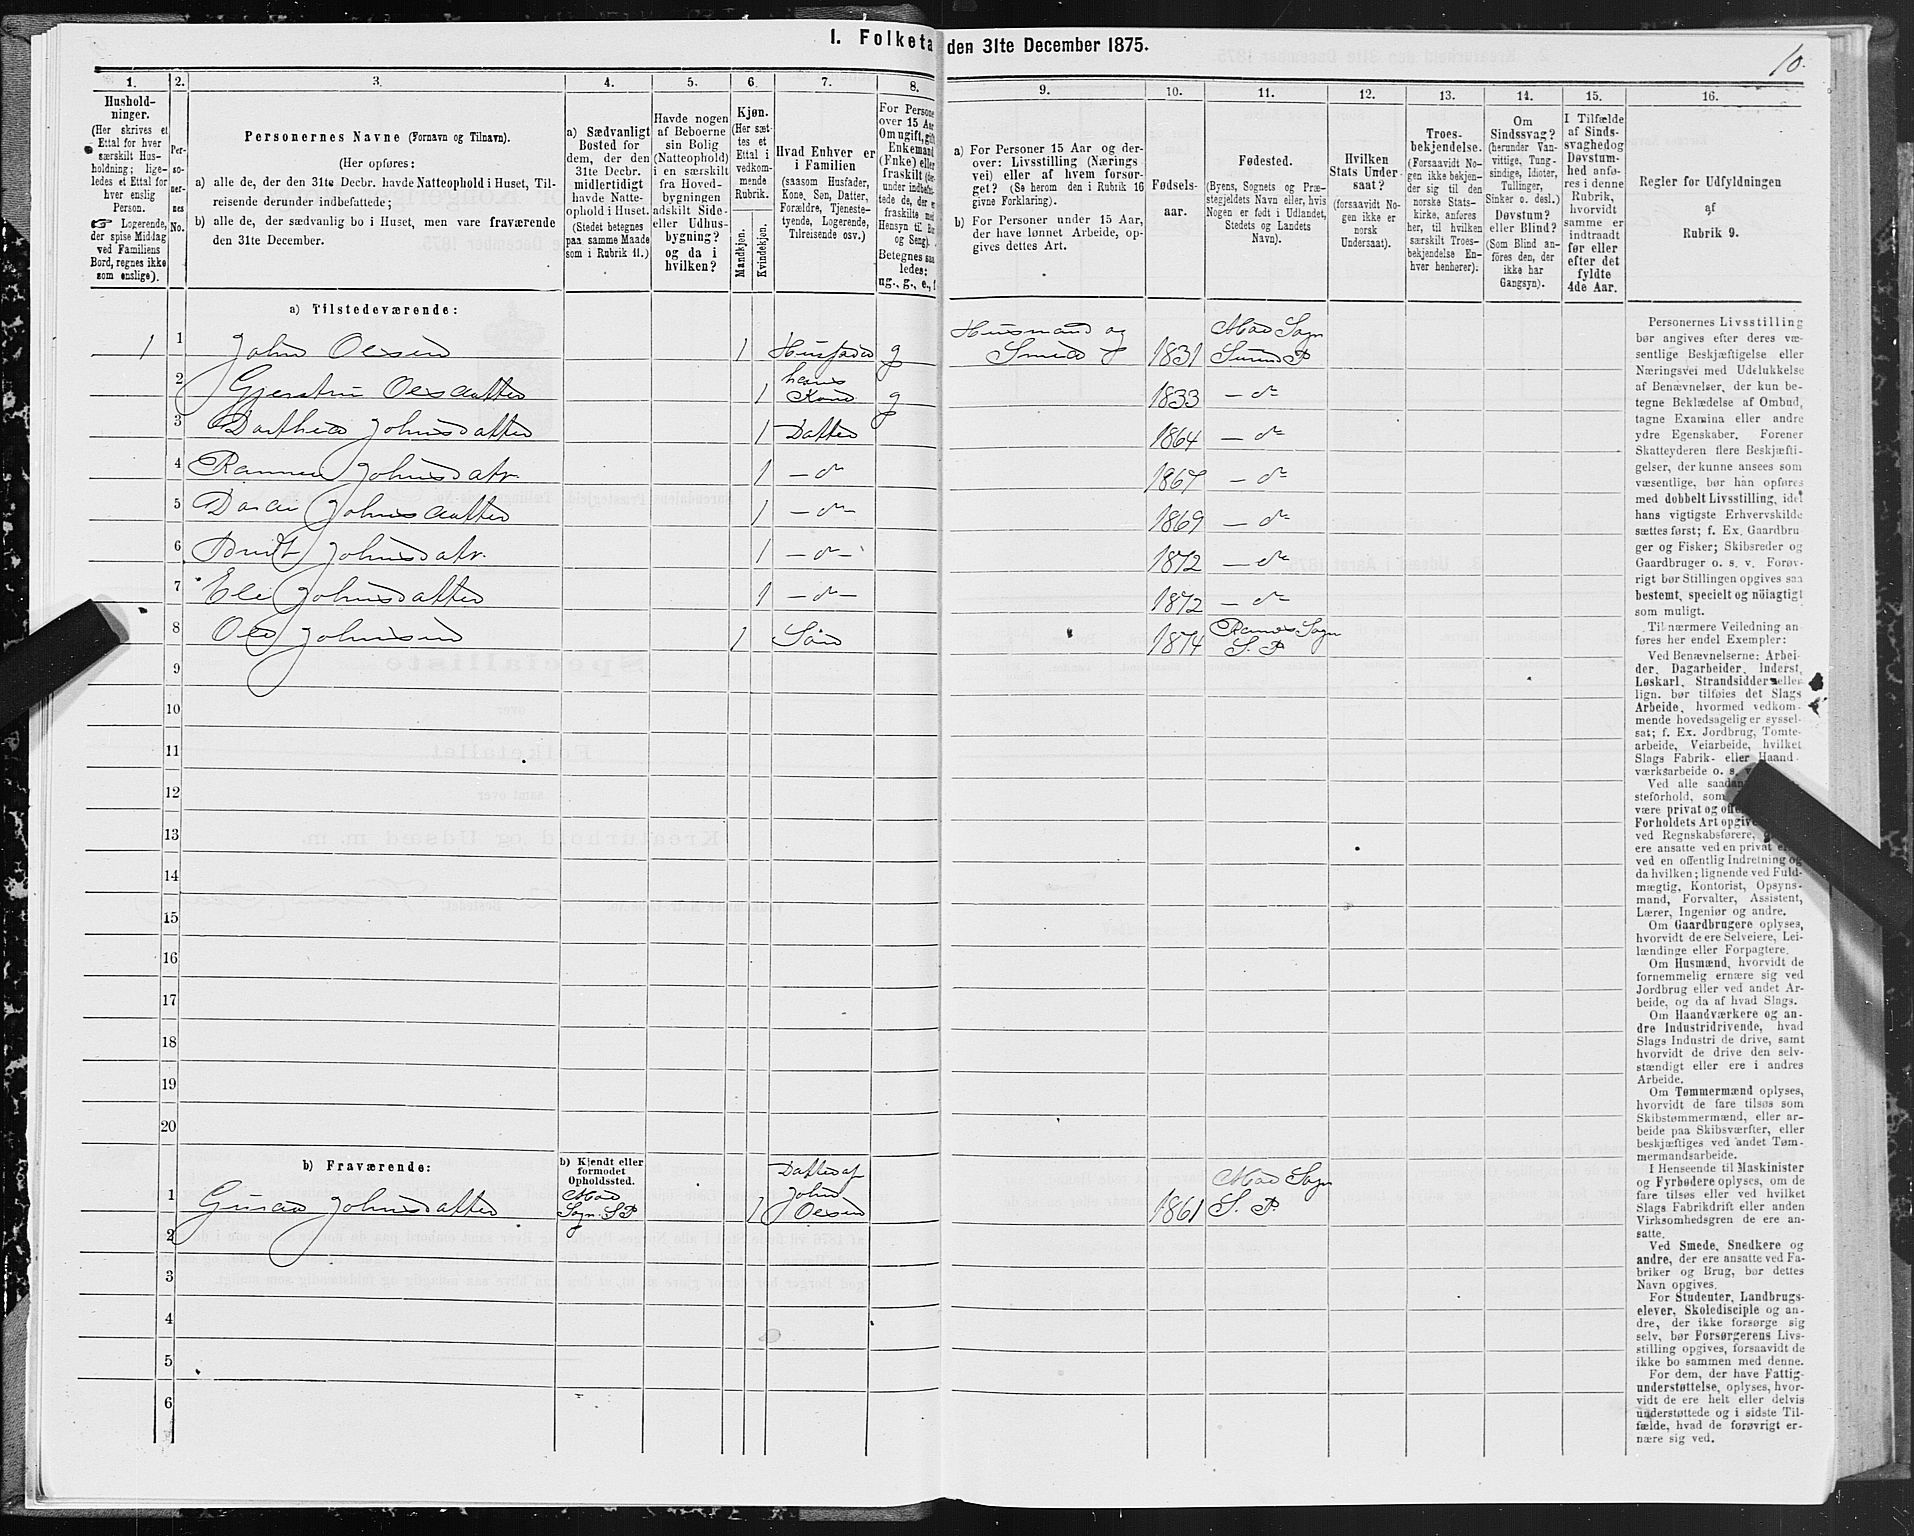 I. Folketa den 31te December 1875.
10.
1.
Hushold-
ninger.
(Her skrives et
Ettal for hver
særskilt Hus-
holdning; lige-
ledes et Ettal for
hver enslig
Person.
☞ Logerende,
der spise Middag
ved Familiens
Bord, regnes ikke
som enslige).
2.
Per-
so-
ner-
nes
No.
3.
Personernes Navne (Fornavn og Tilnavn).
(Her opføres:
a) alle de, der den 31te Decbr. havde Natteophold i Huset, Til-
reisende derunder indbefattede;
b) alle de, der sædvanlig bo i Huset, men vare fraværende
den 31te December.
4.
a) Sædvanligt
Bosted for
dem, der den
31te Decbr.
midlertidigt
havde Natte-
ophold i Huset.
(Stedet betegnes
paa samme Maade
som i Rubrik 11.)
5.
Havde nogen
af Beboerne
sin Bolig
(Natteophold)
i en særskilt
fra Hoved-
bygningen
adskilt Side-
eller Udhus-
bygning?
og da i
hvilken?
6.
Kjøn.
(Her sæt-
tes et
Ettal i
vedkom-
mende
Rubrik.
Mandkjøn.
Kvindekjøn.
7.
Hvad Enhver er
i Familien
(saasom Husfader,
Kone, Søn, Datter,
Forældre, Tjeneste-
tyende, Logerende,
Tilreisende osv.)
8.
For Persone
over 15 Aar
Om ugift, gift
Enkemand
(Enke) eller
fraskilt
Betegnes saa
ledes:
ug., g., e., f
9.
a) For Personer 15 Aar og der-
over: Livsstilling (Nærings
vei) eller af hvem forsør-
get? (Se herom den i Rubrik 16
givne Forklaring).
b) For Personer under 15 Aar,
der have lønnet Arbeide, op-
gives dettes Art.
10.
Fødsels-
aar.
11.
Fødested.
(Byens, Sognets og Præ-
stegjeldets Navn eller, hvis
Nogen er født i Udlandet,
Stedets og Landets
Navn).
12.
Hvilken
Stats Under-
saat?
(forsaavidt No-
gen ikke er
norsk
Undersaat).
13.
Troes-
bekjendelse.
(Forsaavidt No-
gen ikke bekjen-
der sig til den
norske Stats-
kirke, anføres
her, til hvilken
særskilt Troes-
bekjendelse En-
hver henhører).
14.
Om
Sindssvag?
(herunder Van-
vittige, Tung-
sindige, Idioter,
Tullinger,
Sinker o. desl.)
Døvstum?
eller Blind?
(Som Blind an-
føres den, der
ikke har
Gangsyn).
15.
I Tilfælde
af Sinds-
svaghed og
Døvstum-
hed anfø-
res i denne
Rubrik,
hvorvidt
samme er
indtraadt
før eller
efter det
fyldte
4de Aar.
16.
Regler for Udfyldningen
af
Rubrik 9.
a) Tilstedeværende:
1 1 John Olsen 1 Husfader g Husmand og Smed 1831 Moe Sogn Surend. P
2 Gjertru Olsdatter 1 hans Kone g 1833 — do
3 Dorthea Johnsdatter 1 Datter 1864 — do
4 Johnsdatr. 1 — do 1867 — do
5 Johnsdatter 1 — do — 1869 — do
6 Johnsdatr. 1 — do — 1872 — do
7 Eli Johnsdatter 1 — do — 1872 — do
8 Ole Johnsen 1 Søn 1874 Ranes Sogn S. P
9
10
11
12
13
14
15
16
17
18
19
20
b) Fraværende:
b) Kjendt eller
formodet
Opholdssted.
1 Johnsdatter Moe Sogn. S P 1 Datter af John Olsen 1861 Moe Sogn S. P
2
3
4
5
6
Personernes Livsstilling
bør angives efter deres væ-
sentlige Beskjæftigelse eller
Næringsvei med Udelukkelse
af Benævnelser, der kun be-
tegne Beklædelse af Ombud,
tagne Examina eller andre
ydre Egenskaber. Forener
Skatteyderen flere Beskjæfti-
gelser, der kunne ansees som
væsentlige, bør han opføres
med dobbelt Livsstilling, idet
hans vigtigste Erhvervskilde
sættes først; f. Ex. Gaardbru-
ger og Fisker; Skibsreder og
Gaardbruger o. s. v. Forøv-
rigt bør Stillingen opgives saa
bestemt, specielt og nöiagtigt
som muligt.
Til nærmere Veiledning an-
føres her endel Exempler:
Ved Benævnelserne: Arbei-
der, Dagarbeider, Inderst,
Løskarl, Strandsidder eller
lign. bør tilføies det Slags
Arbeide, hvormed vedkom-
mende hovedsagelig er syssel-
sat; f. Ex. Jordbrug, Tomte-
arbeide, Veiarbeide, hvilket
Slags Fabrik- eller Haand-
værksarbeide o. s. v.
Ved alle saadan
steforhold, som
være privat og off
Forholdets Art opgive
ved Regnskabsførere,
ere ansatte ved en privat
ved en offentlig Indretning og
da hvilken; lignende ved Fuld-
mægtig, Kontorist, Opsyns-
mand, Forvalter, Assistent,
Lærer, Ingeniør og andre.
Om Gaardbrugere oplyses,
hvorvidt de ere Selveiere, Lei-
lændinge eller Forpagtere.
Om Husmænd, hvorvidt de
fornemmelig ernære sig ved
Jordbrug eller ved andet Ar-
beide, og da af hvad Slags.
Om Haandværkere og an-
dre Industridrivende, hvad
Slags Industri de drive, samt
hvorvidt de drive den selv-
stændigt eller ere i andres
Arbeide.
Om Tømmermænd oplyses,
hvorvidt de fare tilsøs som
Skibstømmermænd, eller ar-
beide paa Skibsværfter, eller
beskjæftiges ved andet Tøm-
mermandsarbeide.
I Henseende til Maskinister
og Fyrbødere oplyses, om de
fare tilsøs eller ved hvilket
Slags Fabrikdrift eller anden
Virksomhedsgren de ere an-
satte.
Ved Smede, Snedkere og
andre, der ere ansatte ved Fa-
briker og Brug, bør dettes
Navn opgives.
For Studenter, Landbrugs-
elever, Skoledisciple og an-
dre, der ikke forsørge sig
selv, bør Forsørgerens Livs-
stilling opgives, forsaavidt de
ikke bo sammen med denne.
For dem, der have Fattig-
understøttelse, oplyses, hvor-
vidt de ere helt eller delvis
understøttede og i sidste Til-
fælde, hvad de forøvrigt er-
nære sig ved.